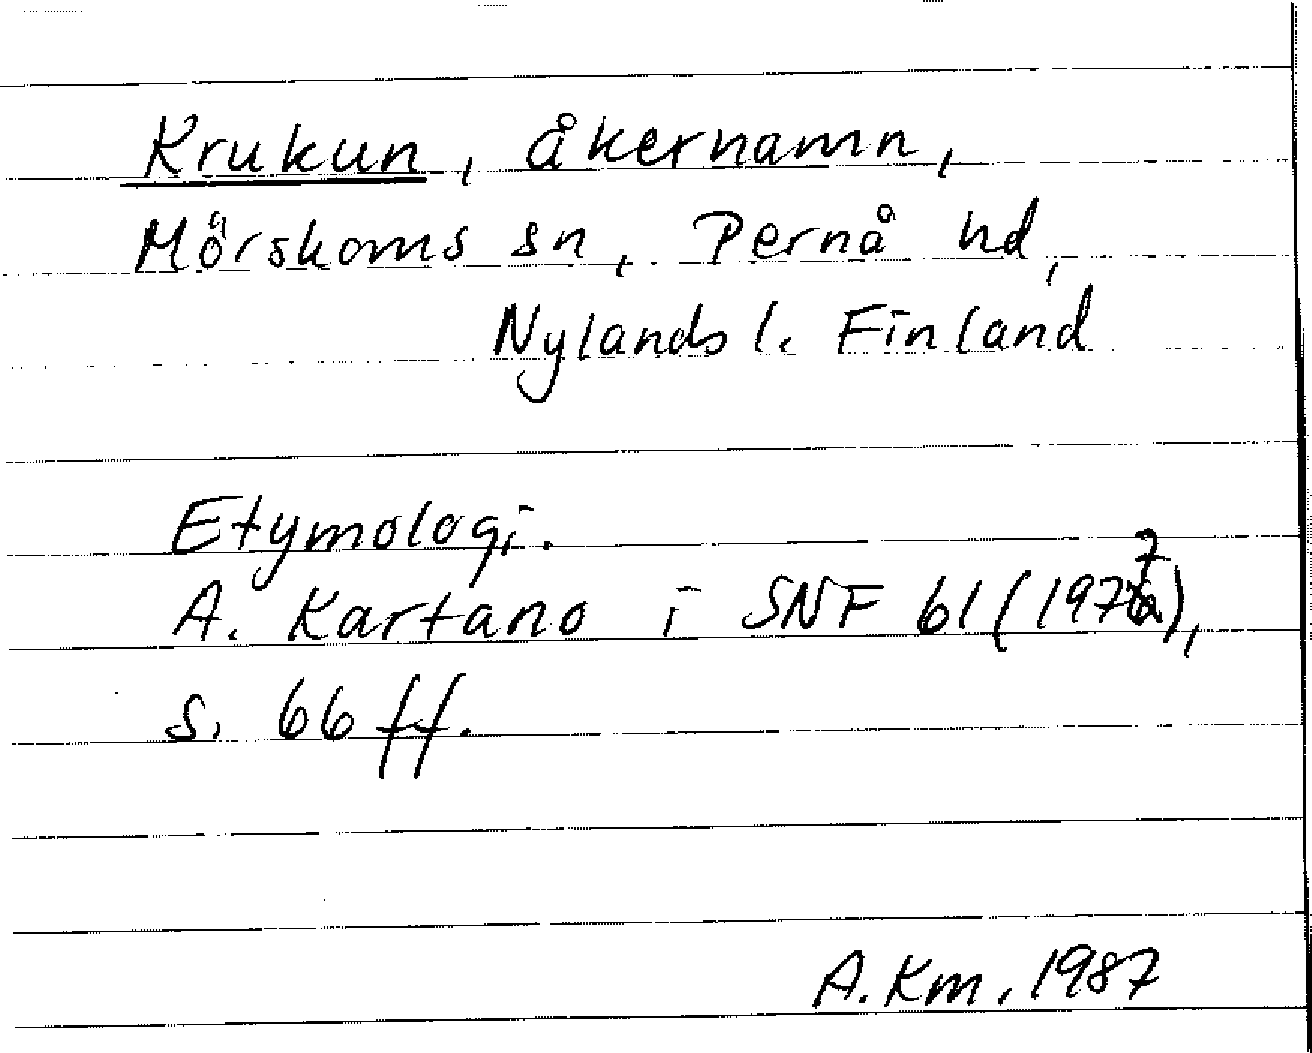 Krukun, åkernamn,
Mörskoms sn, Pernå hd,
Nylands l. Finland
Etymologi.
A. Kartano i SNF 61 (1977),
s. 66 ff.
A. Km. 1987